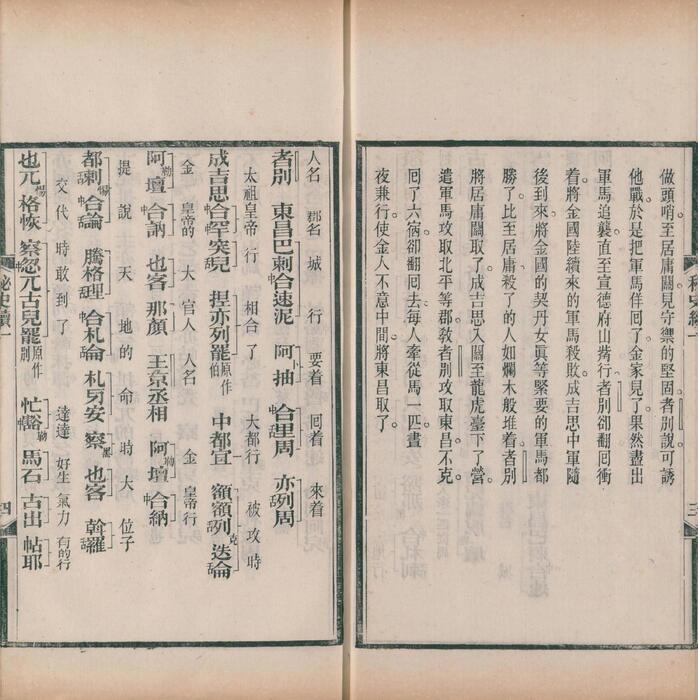 做頭哨至居庸關見守禦的堅固者別說可誘
他戰於是把軍馬佯回了金家見了果然盡出
軍馬追襲直至宣德府山觜行者別卻翻回衝
着將金國陸續來的軍馬殺敗成吉思中軍隨
後到來將金國的契丹女真等緊要的軍馬都
勝了比至居庸殺了的人如爛木般堆着者別
將居庸關取了成吉思入關至龍虎臺下了營
遣軍馬攻取北平等郡教者別攻取東昌不克
回了六宿卻翻回去每人牽從馬一匹晝
夜兼行使金人不意中間將東昌取了
三
人名 郡名 城 行 要着 回着 來着
者別 東昌巴剌合速泥 阿抽 合里周 亦列周
太祖皇帝 行 相合了 大都行 被攻時
成吉思中合罕突兒 捏亦列罷原作伯 中都宜 額額列克迭論
金 皇帝的 大 官人 人名 金 皇帝行
阿勒壇 中合訥 也客 那顏 王京丞相 阿勒壇 中合納
提說 天 地的 命 時 大 位子
都剌 合論 騰格理 合札侖 札牙安 察黑 也客 斡羅
交代 時敢到了 達達 好生 氣力 有的行
也兀 格恢 察忽兀古兒罷原作別 忙豁勒 馬石 古出 帖耶
秘史續一
四